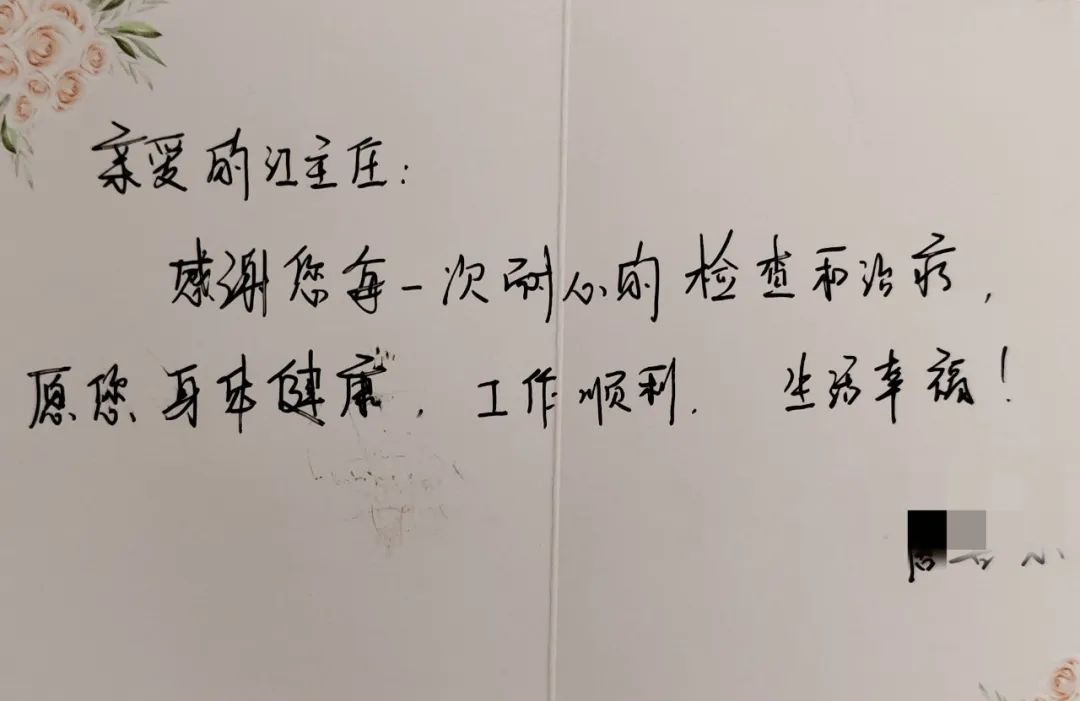 亲爱的江主任：
感谢您每一次耐心的检查和治疗，
愿您身体健康，工作顺利，生活幸福！